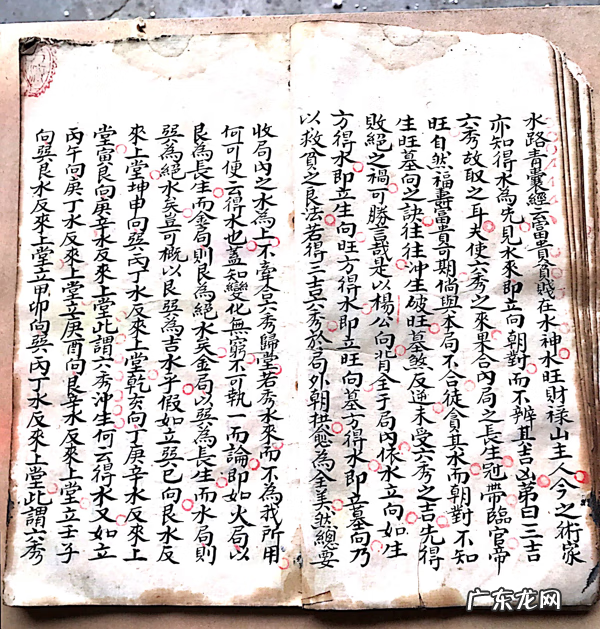 水路青囊經云富貴貧賤在水神水旺財禄山主人今之術家
亦知得水為先見水來即立向朝對而不辨其吉凶第曰三吉
六秀故取之耳夫使六秀之來果合內局之長生冠帶臨官帝
旺自然福壽富貴可期倘與本局不合徒貪其水而朝對不知
生旺墓向之訣往往沖生破旺墓煞反逆未受六秀之吉先得
敗絕之禍可勝言哉是以楊公向背全于局內依水立向如生
方得水即立生向旺方得水即立旺向墓方得水即立墓向乃
以救貧之良法若得三吉六秀於局外朝拱愈為全美然總要
收局內之水為上不牽合六秀歸堂若秀水來而不為我所用
何可便云得水也蓋知變化無窮不可執一而論即如火局以
艮為長生而金局則艮為絕水矣金局以巽為長生而水局則
巽為絕水矣豈可概以艮巽為吉水乎假如立巽巳向艮水反
來上堂坤申向巽丙丁水反來上堂乾亥向丁庚辛水反來上
堂寅艮向庚辛水反來上堂此謂六秀沖生何云得水又如立
丙午向庚丁水反來上堂立庚酉向艮辛水反來上堂立壬子
向巽艮水反來上堂立甲卯向巽丙丁水反來上堂此謂六秀
广东龙网